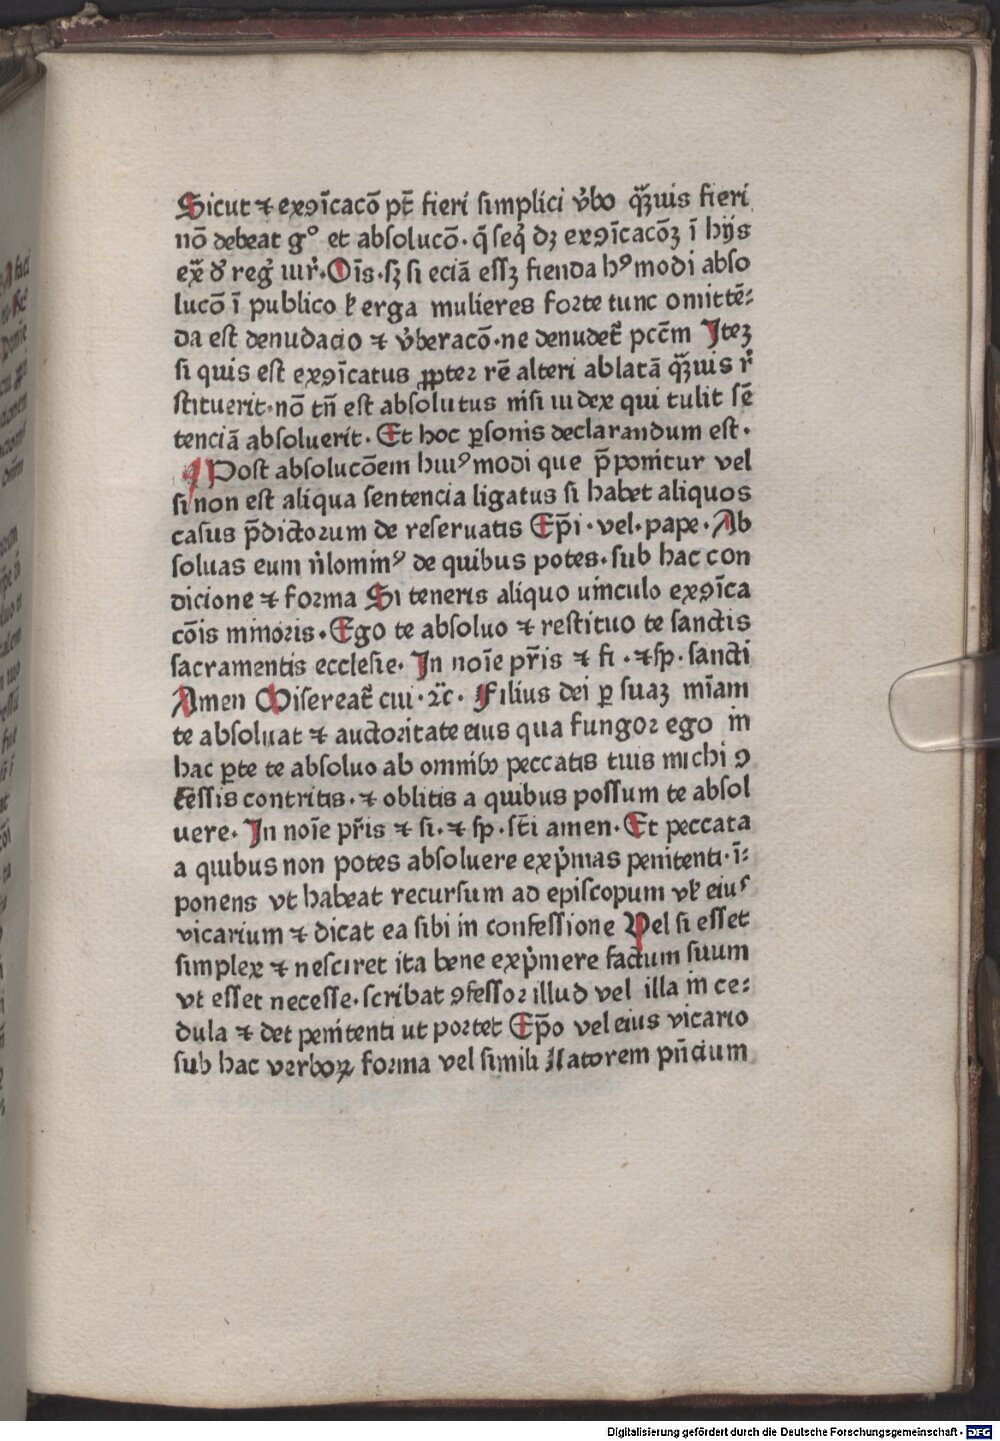 Sicut ⁊ exꝯīcacō pt̄ fieri simplici v̓bo qꝫ̄uis fieri
nō debeat g° et absolucō · q̄ seq̓ dꝫ exꝯīcacōꝫ ī hijs
ex̄ d̓ reg̓ iur̓ · Oīs · sꝫ si eciā essꝫ fienda hꝰmodi abso
lucō ī publico ł erga mulieres forte tunc omittē⸗
da est denudacio ⁊ v̓beracō · ne denudet᷑ pcc̄m Iteꝫ
si quis est exꝯīcatus ꝓpter rē alteri ablatā qꝫ̄uis r̓
stituerit · nō tn̄ est absolutus nisi iudex qui tulit sē
tenciā absoluerit · Et hoc ꝑsonis declarandum est ·
¶ Post absolucōem huiꝰmodi que p̄ponitur vel
si non est aliqua sentencia ligatus si habet aliquos
casus p̄dictorum de reseruatis Ep̄i · vel · pape · Ab
soluas eum n̓lominꝰ de quibus potes · sub hac con
dicione ⁊ forma Si teneris aliquo uinculo exꝯīca
cōis minoris · Ego te absoluo ⁊ restituo te sanctis
sacramentis ecclesie · In noīe pr̄is ⁊ fi · ⁊ sp · sancti
Amen Misereat᷑ cui · ⁊c̄ · Filius dei ꝑ suaꝫ miāam
te absoluat ⁊ auctoritate eius qua fungor ego in
hac ꝑte te absoluo ab omnibꝰ peccatis tuis michi ꝯ
fessis contritis · ⁊ oblitis a quibus possum te absol
uere · In noīe pr̄is ⁊ fi · ⁊ sp · sc̄ti amen · Et peccata
a quibus non potes absoluere exp̓mas penitenti · ī⸗
ponens vt habeat recursum ad episcopum vł eiuꝰ
vicarium ⁊ dicat ea sibi in confessione Vel si esset
simplex ⁊ nesciret ita bene exp̓mere factum suum
vt esset necesse · scribat ꝯfessor illud vel illa in ce⸗
dula ⁊ det penitenti ut portet Ep̄o vel eius vicario
sub hac verboꝝ forma vel simili Latorem pn̄cium
Digitalisierung gefördert durch die Deutsche Forschungsgemeinschaft - DFG